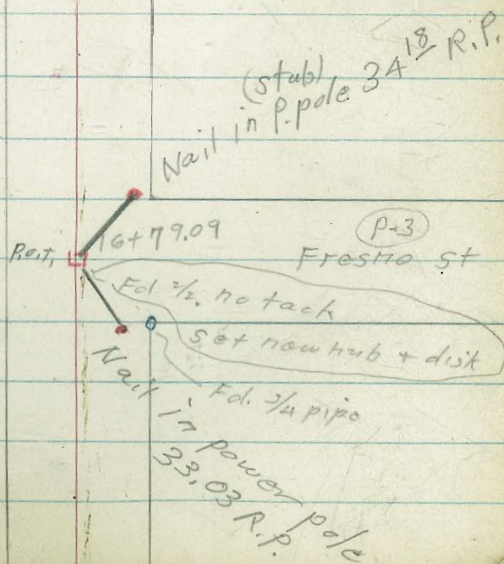 (stub)
Nail in P. pole 34 18 R.P.
P-3
16+79.09
Fresno st
P.O.T.
Fd. 2/2. no tack
set new hub + disk
Fd. 3/4 pipe
Nail in power pole
33.03 R.P.